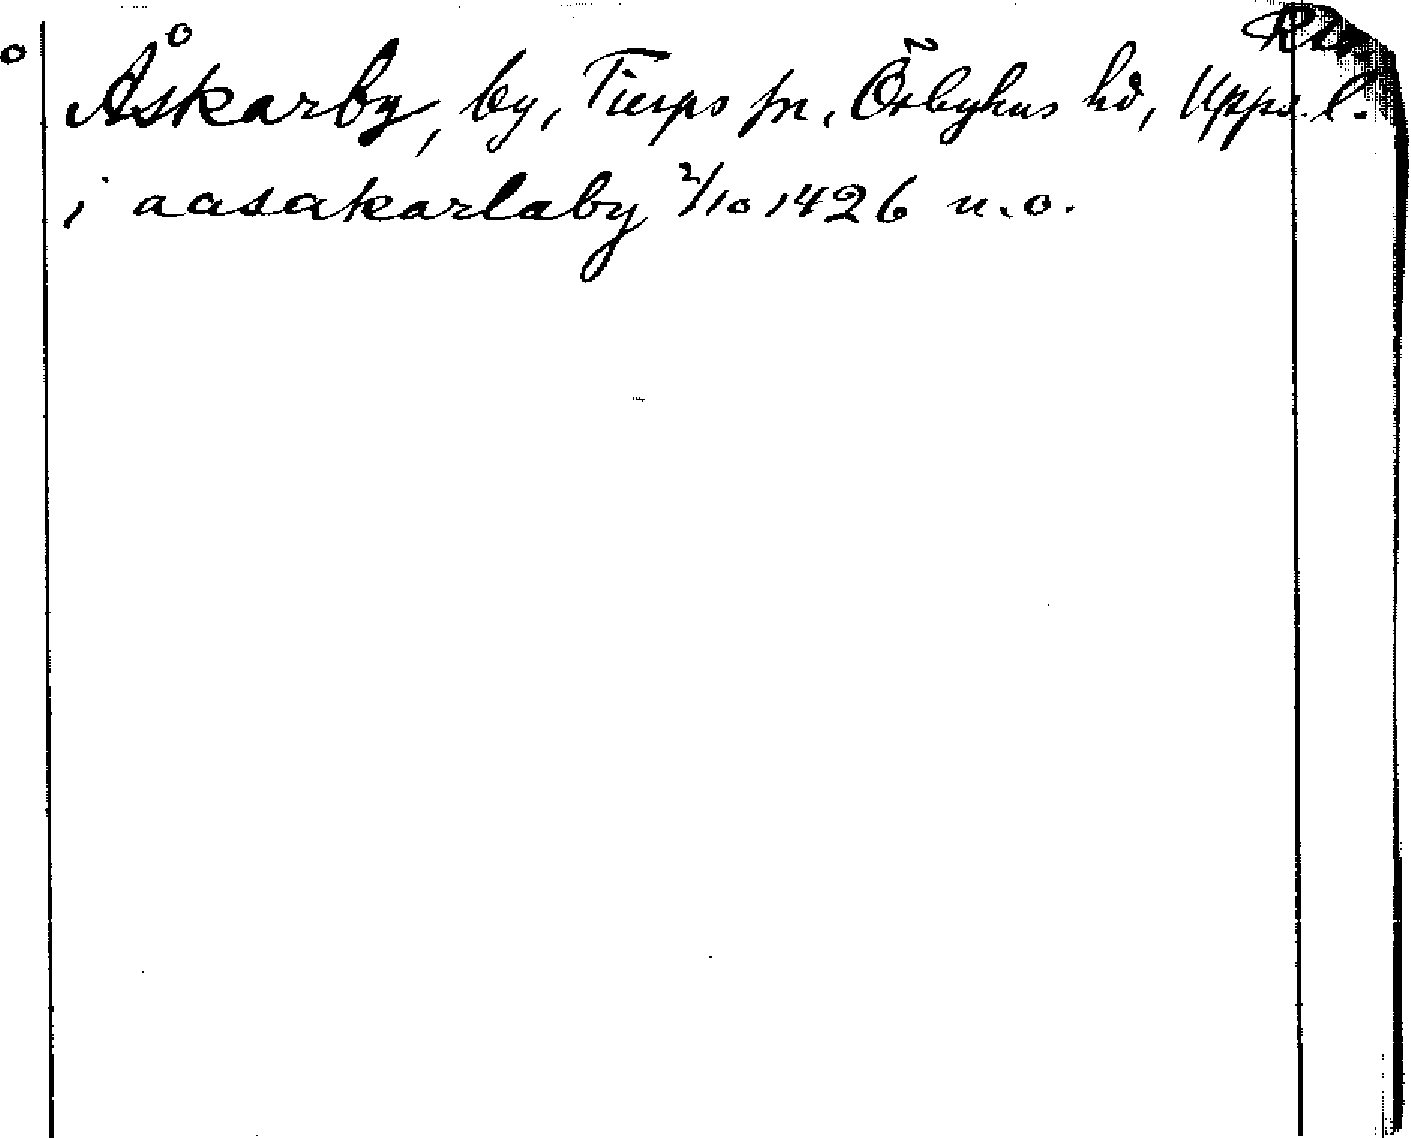 Åskarby, by, Tierps sn, Örbyhus hd, Upps. l.
i aasakarlaby 2/10 1426 u.o.